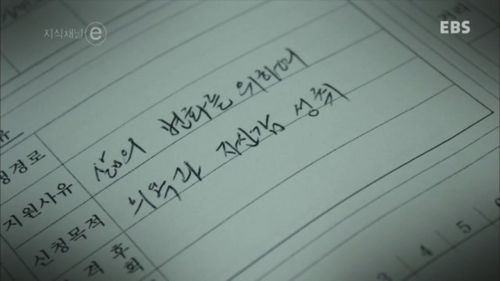 지식채널e
EBS
삶의 변화를 위하여
지원사유
의욕과 자신감 성취
신청목적
격 후 회
3 4 5 6